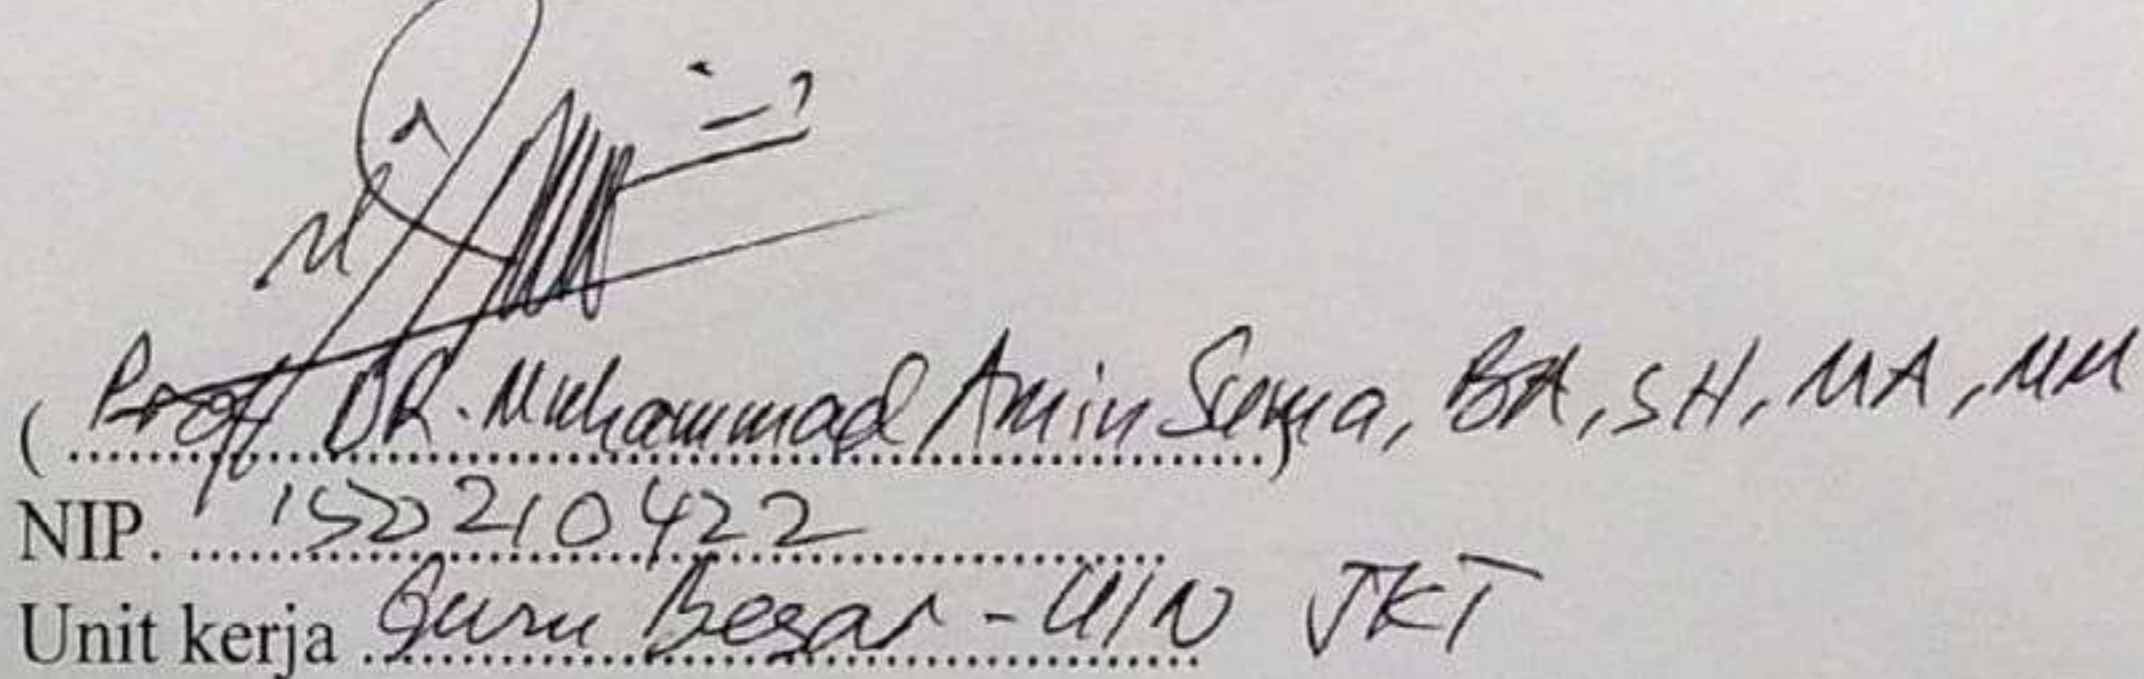 (Prof. DR. Muhammad Amin Suma, BA, SH, MA, MM)
NIP. 150210422
Unit kerja Guru Besar - UIN JKT